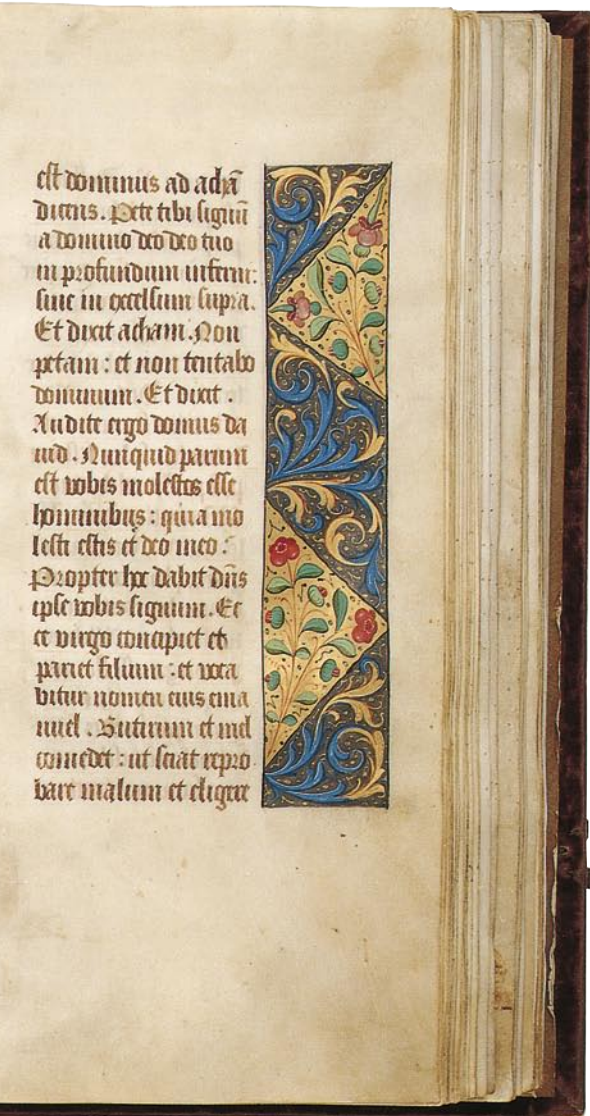 est dominus ad achā
dicens. Pete tibi signū
a domino deo deo tuo
in profundum inferni:
siue in excelsum supra.
Et dixit acham. Non
petam: et non tentabo
dominum. Et dixit.
Audite ergo domus da
uid. Nunquid parum
est vobis molestos esse
hominibus: quia mo
lesti estis et deo meo:
Propter hoc dabit dn̄s
ipse vobis signum. Ec
ce virgo concipiet et
pariet filium: et voca
bitur nomen eius ema
nuel. Butirum et mel
comedet: ut sciat repro
bare malum et eligere